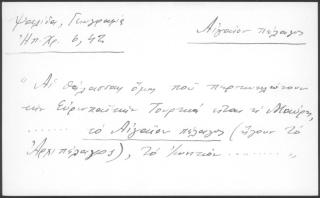 Ψαλίδα, Γεωγραφία
Ἠπ. Χρ. 6, 42
Αἰγαῖον πέλαγος
"Αἱ θάλασσαι ὅμως ποῦ περικυκλώνουν
τὴν Εὐρωπαϊκὴν Τουρκιὰ εἶναι ἡ Μαύρη,
........ τὸ Αἰγαῖον πέλαγος (ἤγουν τὸ
Ἀρχιπέλαγος), τὸ ........ "